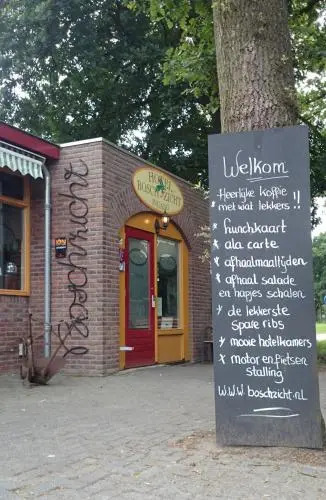 Boschzicht
HOTEL
BOSCHZICHT
Welkom
Heerlijke koffie
met wat lekkers !!
x lunchkaart
x ala carte
x afhaalmaaltijden
x afhaal salade
en hapjes schalen
x de lekkerste
spare ribs
x mooie hotelkamers
x motor en fietsen
stalling
www.boschzicht.nl